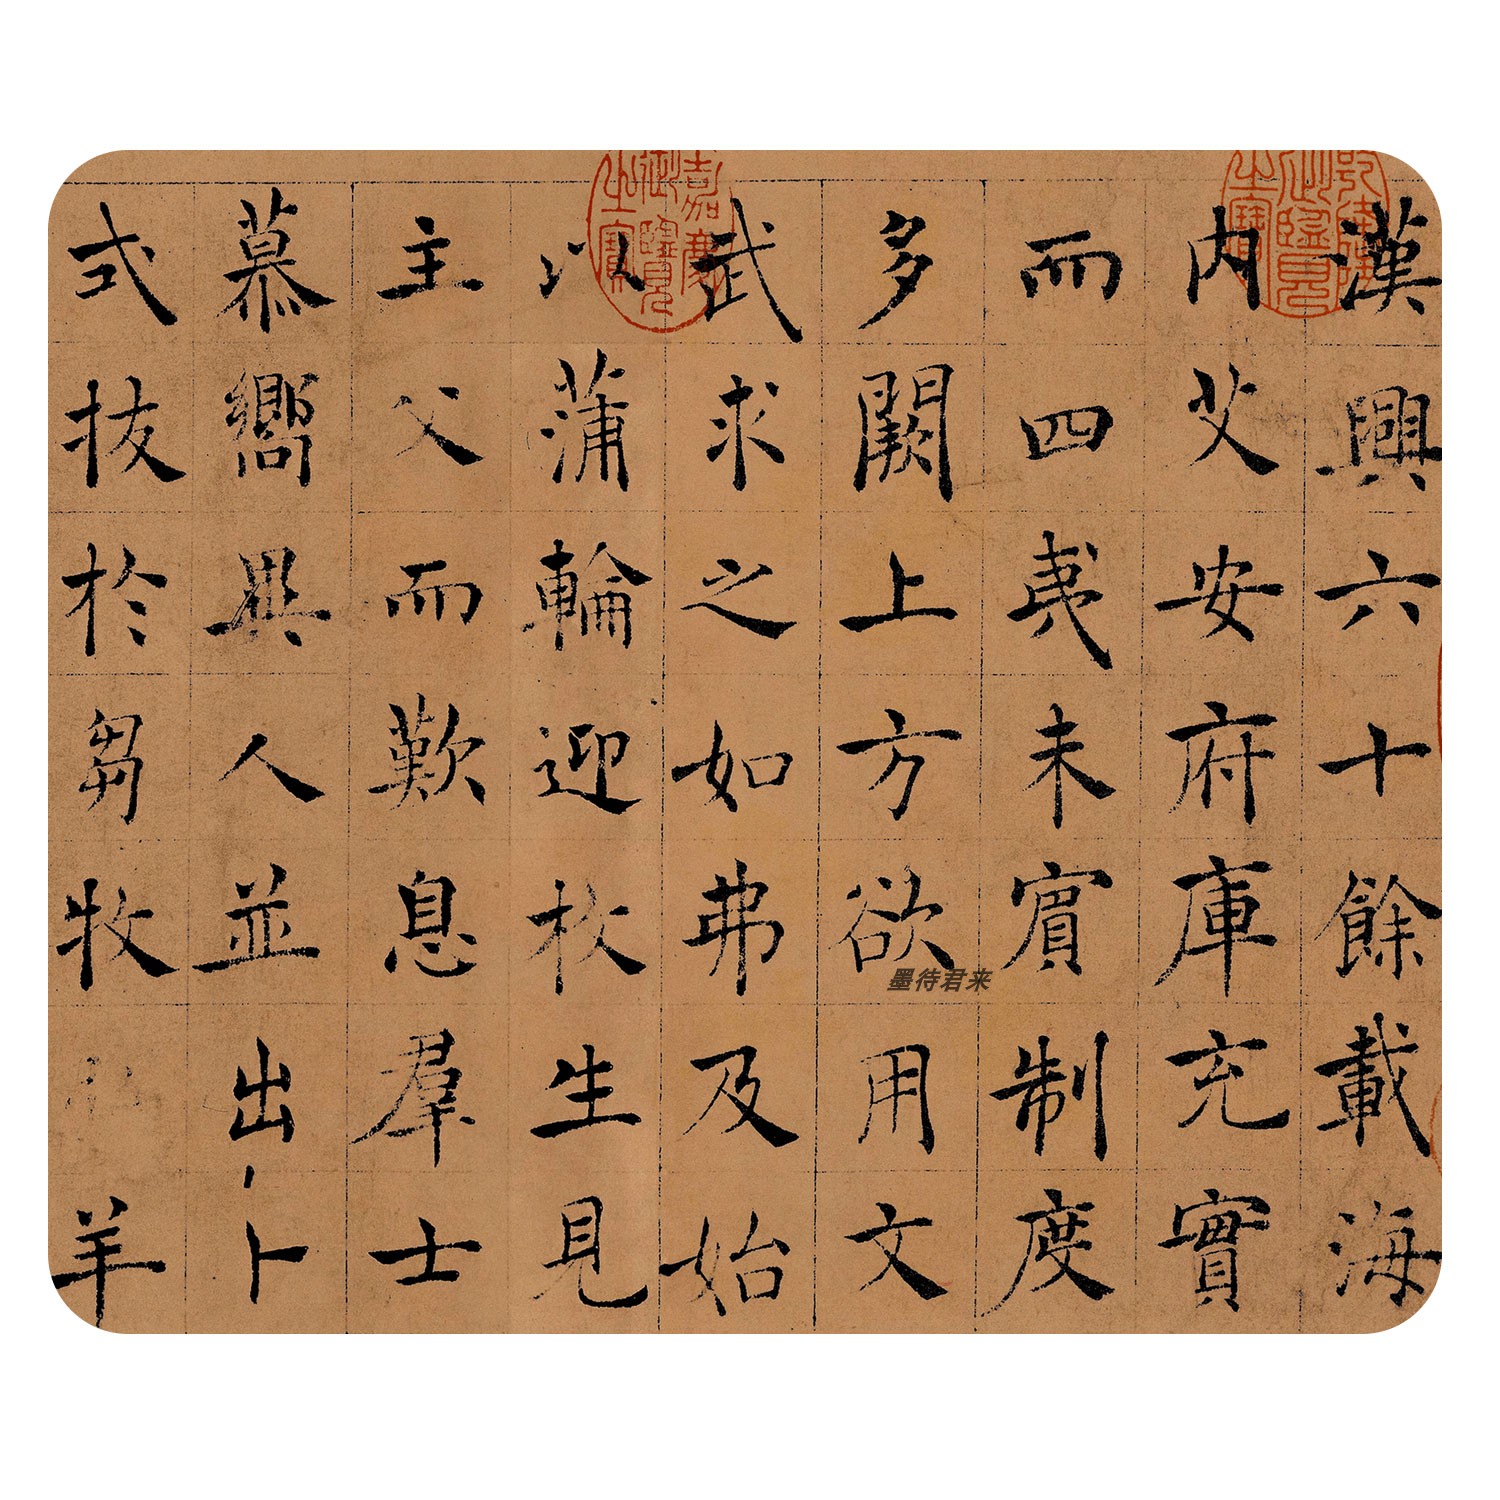 漢興六十餘載海
内艾安府庫充實
而四夷未賓制度
多闕上方欲用文
武求之如弗及始
以蒲輪迎枚生見
主父而歎息羣士
慕嚮異人並出卜
式拔於芻牧羊
乾隆御覽之寶
嘉慶御覽之寶
墨待君来